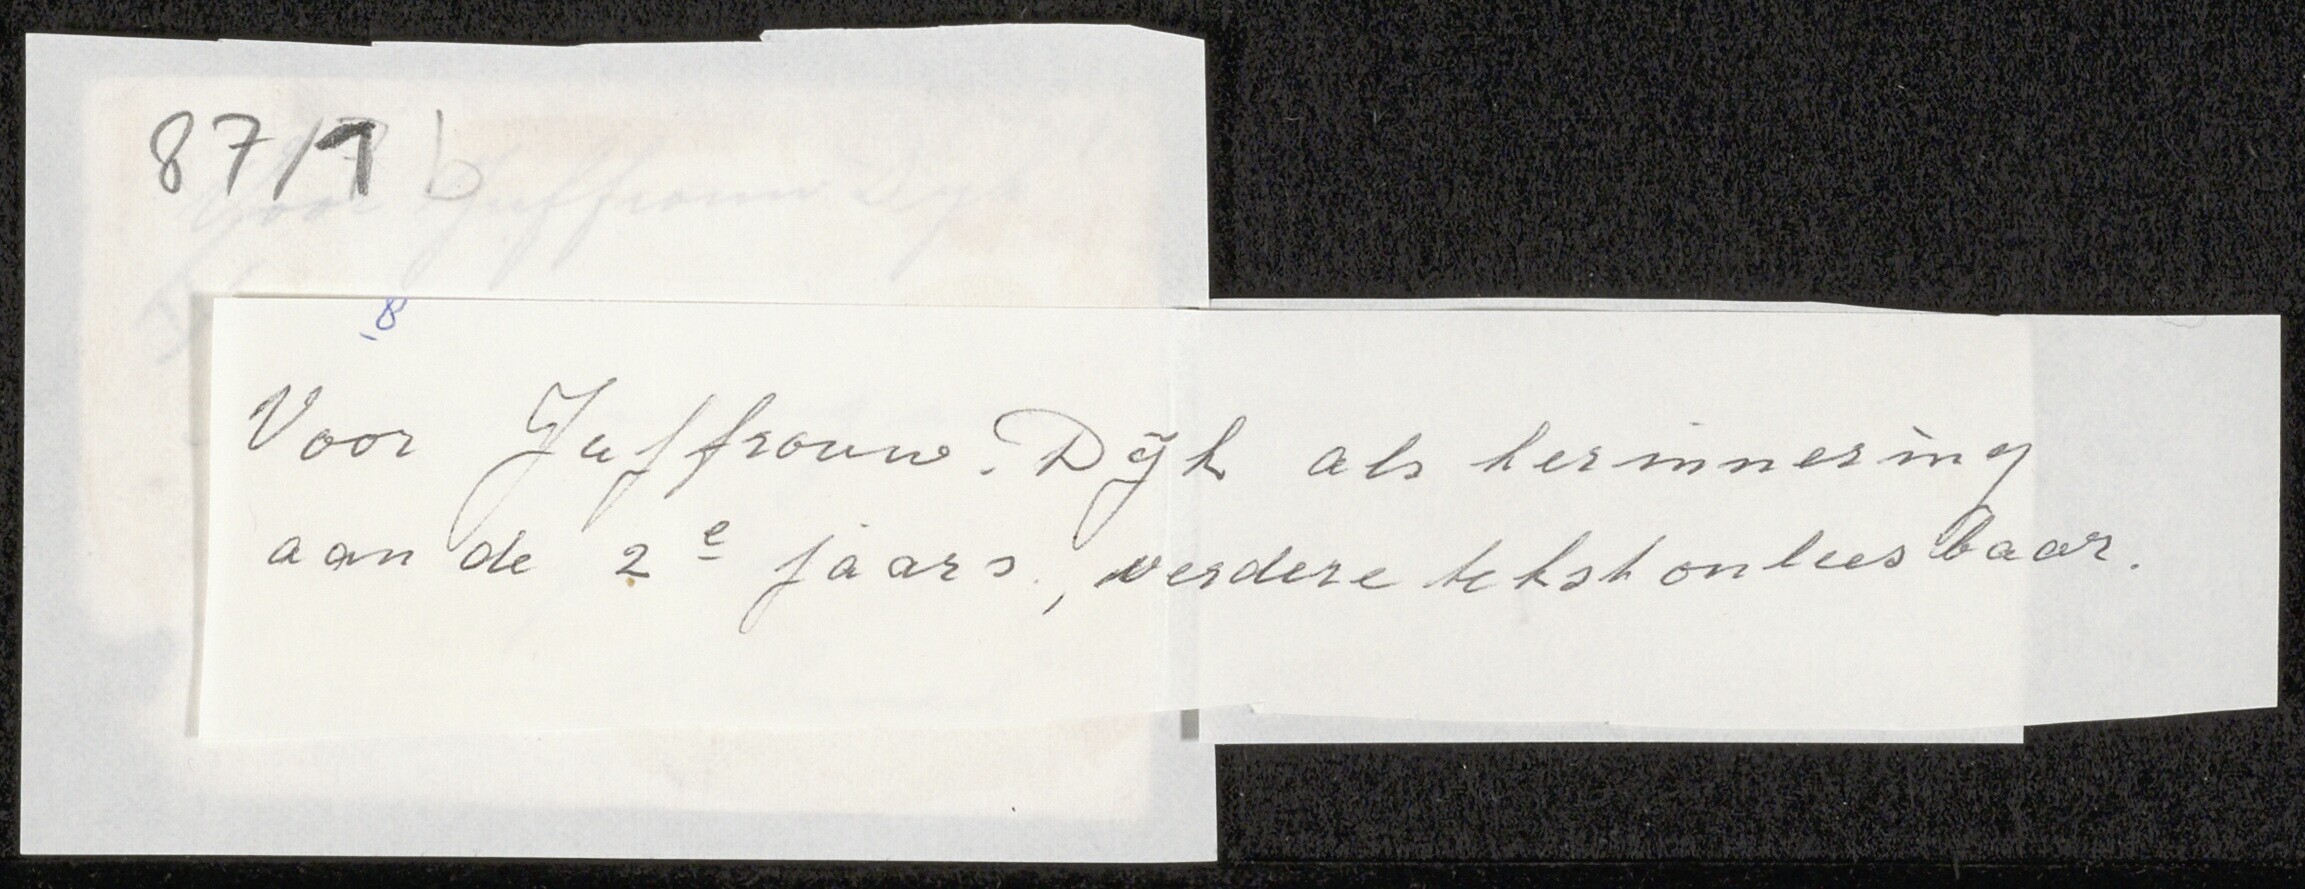 87/1 b
Voor Juffrouw Dijk
8
Voor Juffrouw. Dijk als herinnering
aan de 2e jaars, verdere tekst onleesbaar.